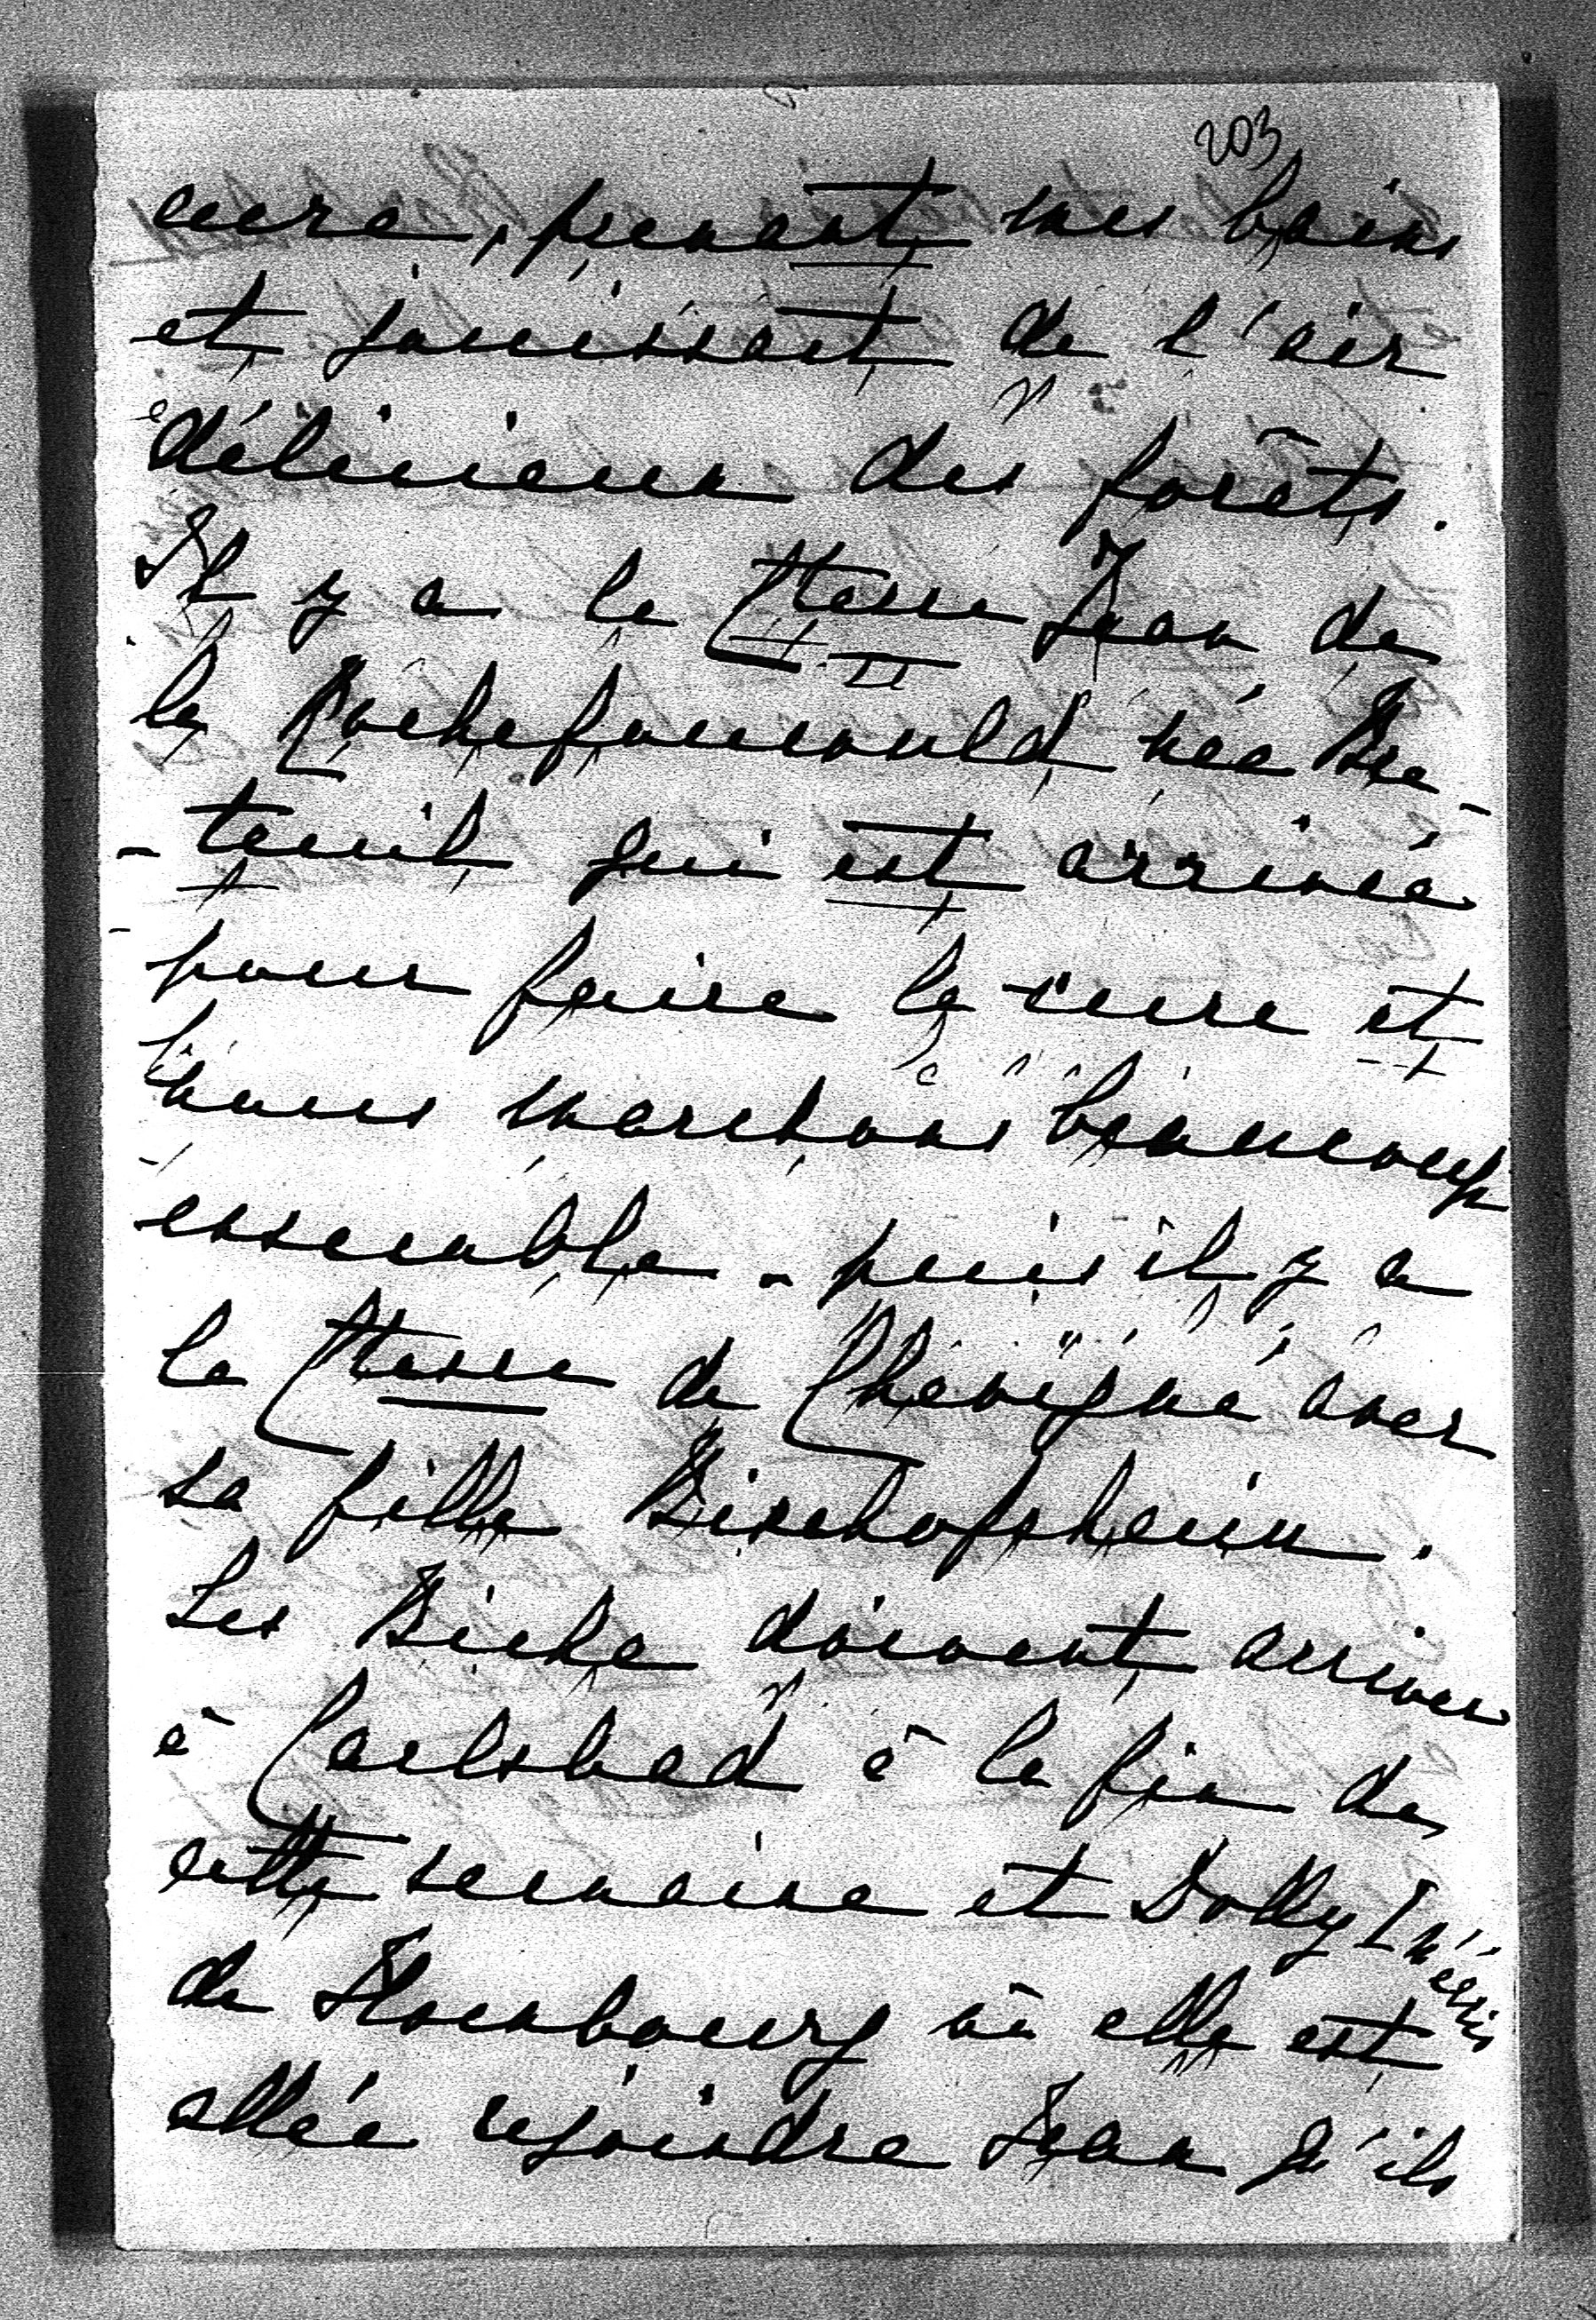 203
cure, prenant mes bains
et jouissant de l'air
délicieux des forêts.
Il y a la Ctesse Jean de
la Rochefoucauld née Bre-
-teuil qui est arrivée
pour faire la cure et
nous marchons beaucoup
ensemble - puis il y a
la Ctesse de Chévigné avec
sa fille Bischofsheim.
Les Biche doivent arriver
à Carlsbad à la fin de
cette semaine et Dolly
de Hombourg où elle est
allée rejoindre Jean qu'ils